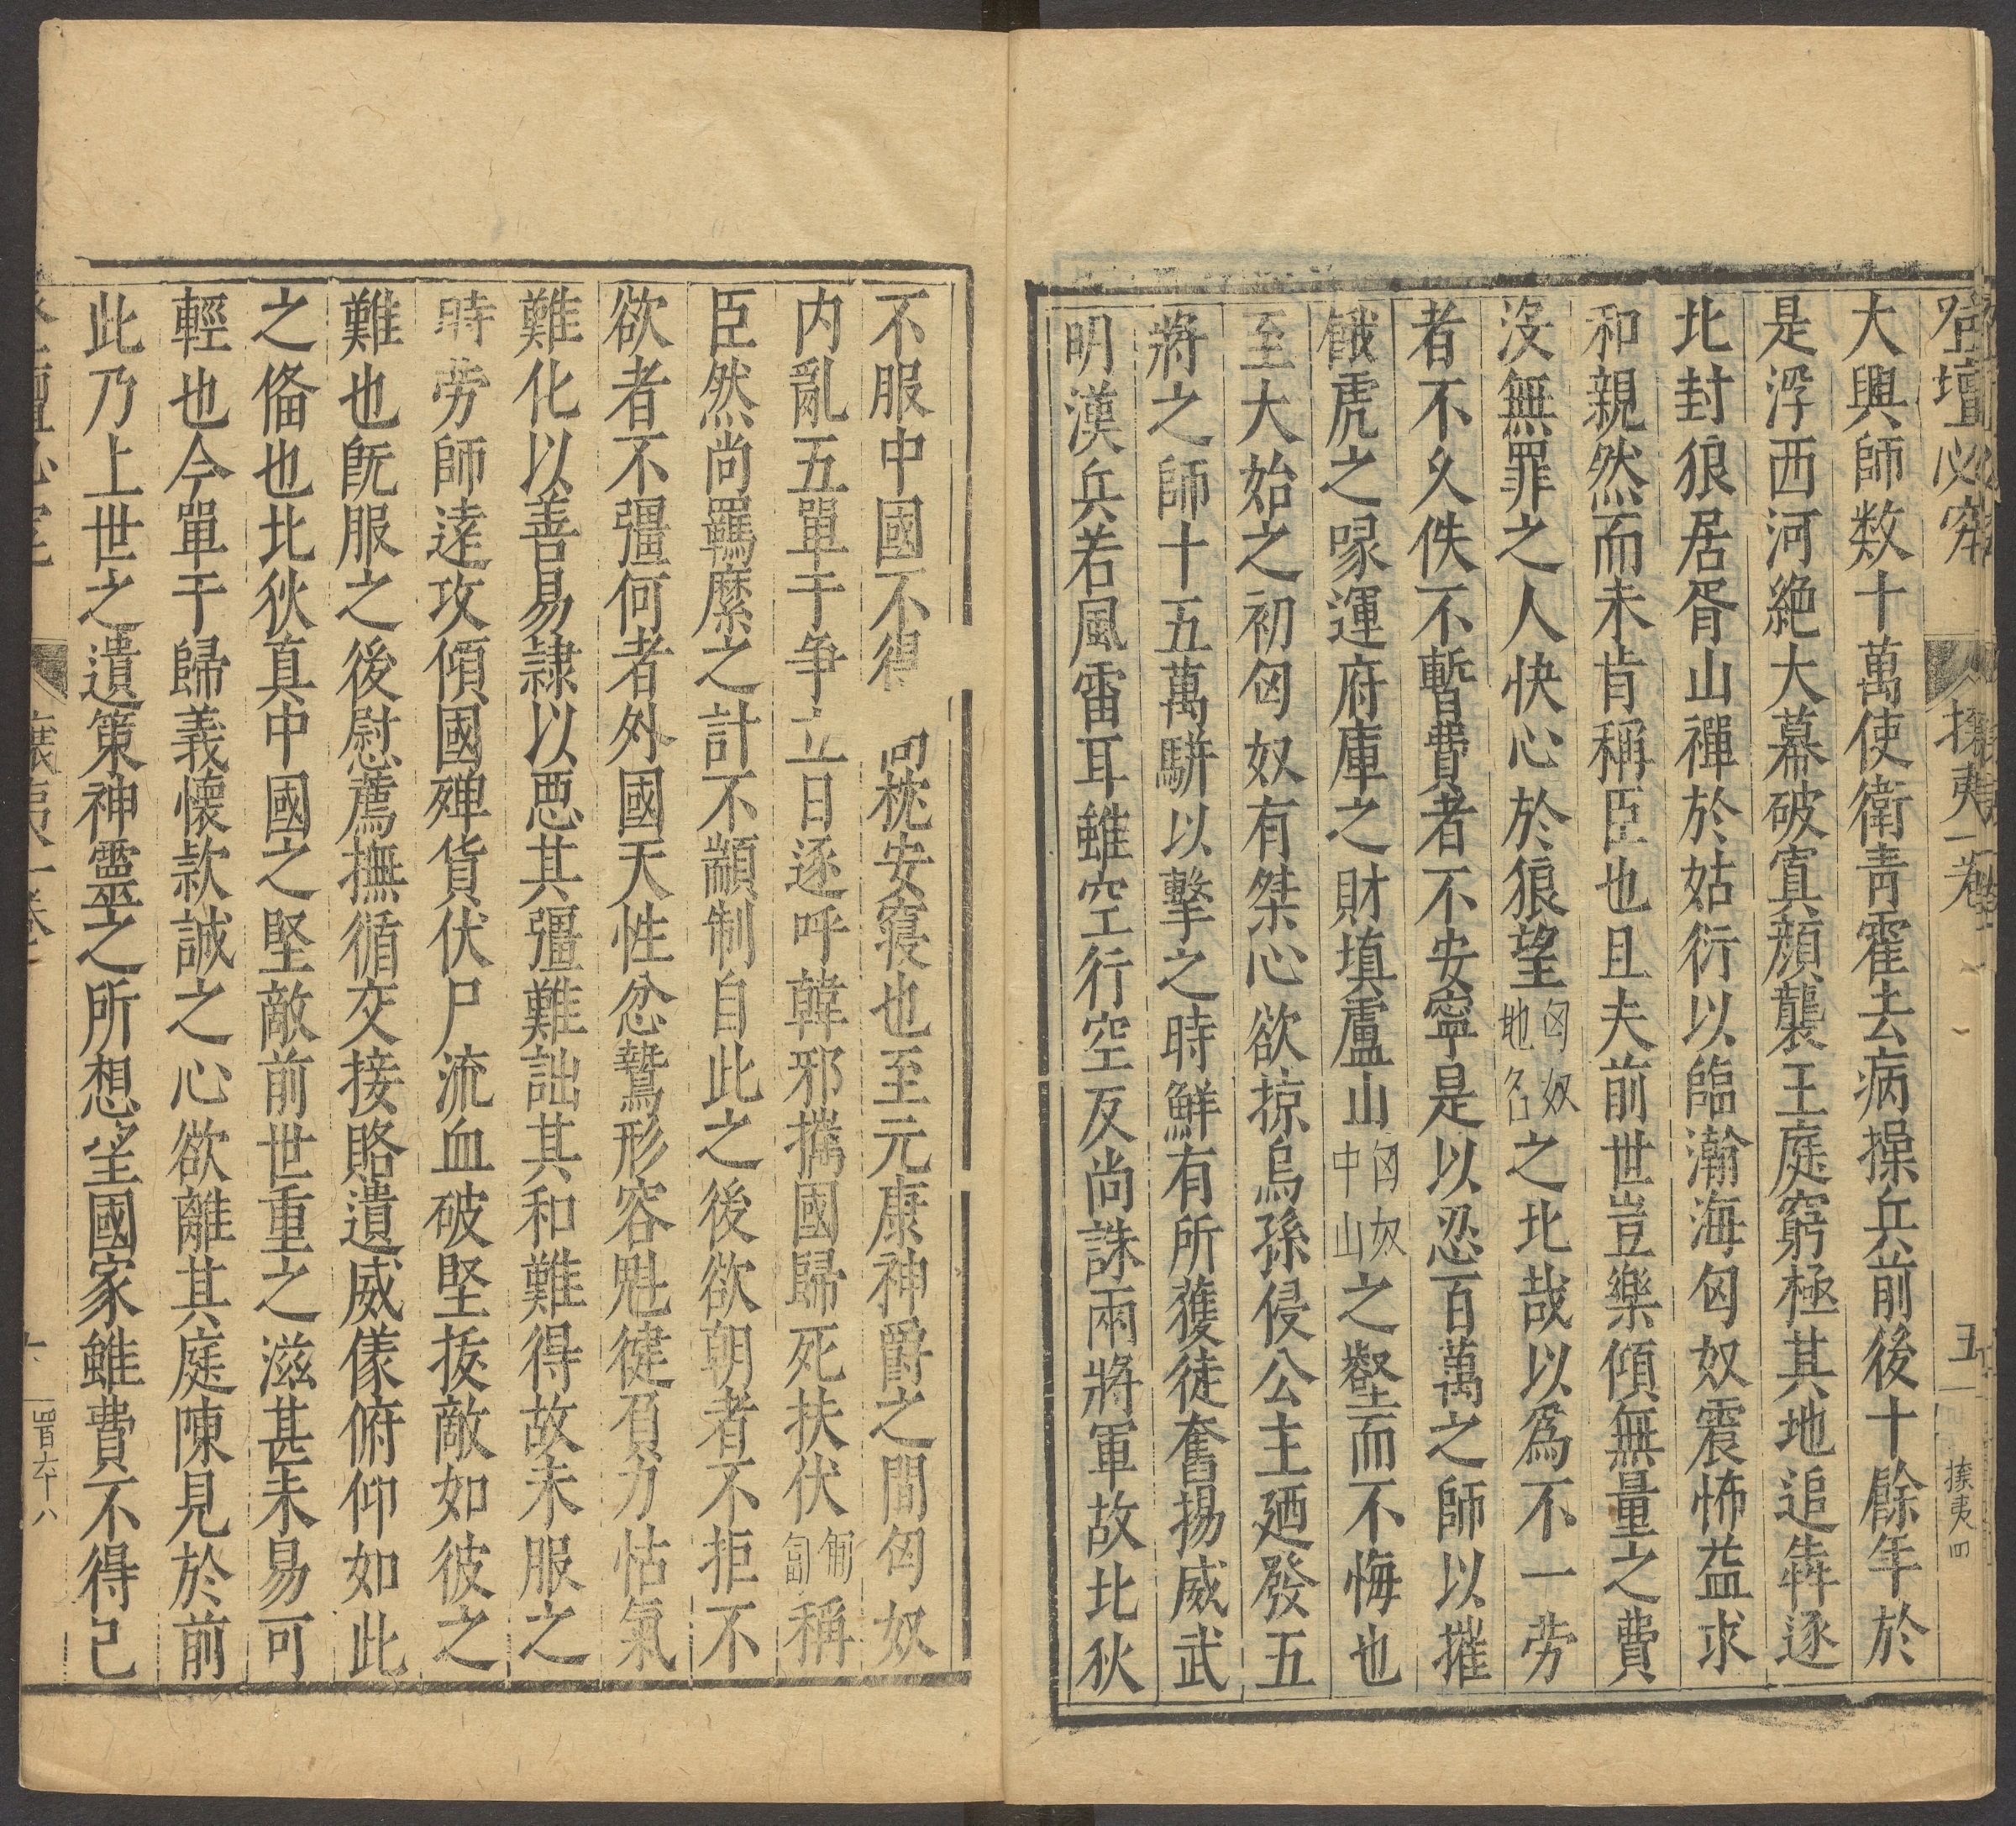 登壇必究 攘夷一卷 五 攘夷四
大興師數十萬使衛青霍去病操兵前後十餘年於
是浮西河絶大幕破寘顔襲王庭窮極其地追犇逐
北封狼居胥山禪於姑衍以臨瀚海匈奴震怖益求
和親然而未肯稱臣也且夫前世豈樂傾無量之費
沒無罪之人快心於狼望匈奴地名之北哉以爲不一劳
者不久佚不暫費者不安寧是以忍百萬之師以摧
餓虎之喙運府庫之財填盧山匈奴中山之壑而不悔也
至大始之初匈奴有桀心欲掠烏孫侵公主廼發五
將之師十五萬騎以擊之時鮮有所獲徒奮揚威武
明漢兵若風雷耳雖空行空反尚誅兩將軍故北狄
不服中國不得 枕安寢也至元康神爵之間匈奴
内亂五單于爭立日逐呼韓邪攜國歸死扶伏匍匐稱
臣然尚羈縻之計不顓制自此之後欲朝者不拒不
欲者不彊何者外國天性忿鷙形容魁健負力怙氣
難化以善易隸以惡其彊難詘其和難得故未服之
時劳師遠攻傾國殫貨伏尸流血破堅拔敵如彼之
難也旣服之後慰薦撫循交接賂遺威儀俯仰如此
之俻也北狄真中國之堅敵前世重之滋甚未易可
輕也今單于歸義懷款誠之心欲離其庭陳見於前
此乃上世之遺策神靈之所想望國家雖費不得已
攘夷一卷 百六十八